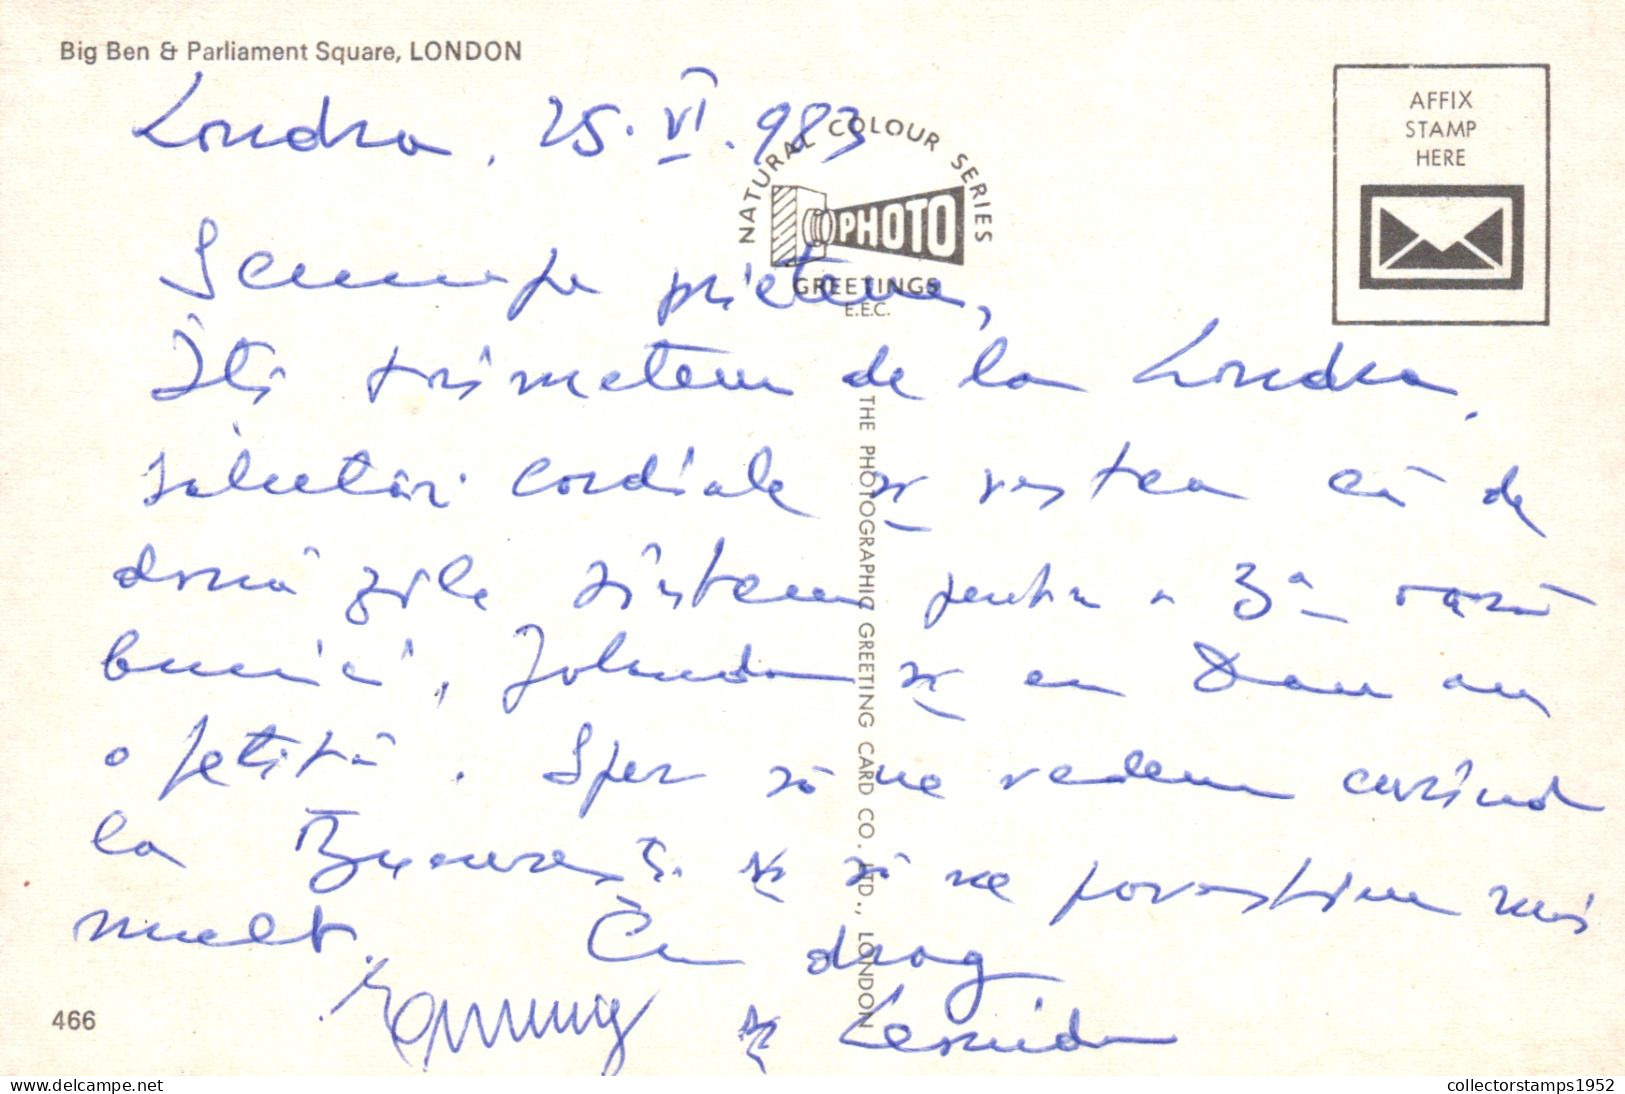 Big Ben & Parliament Square, LONDON
Londra, 25.VI.983
AFFIX
STAMP
HERE
NATURAL COLOUR SERIES
PHOTO
GREETINGS
E.E.C.
Scumpe prietene,
Îți trimetem de la Londra,
salutări cordiale și vestea că de
două zile sîntem pentru a 3a oară
bunici, Jolanda și cu Dan au
o fetiță. Sper să ne vedem curînd
la București și să ne povestim mai
mult. Cu drag
și
THE PHOTOGRAPHIC GREETING CARD CO. LTD., LONDON
466
delcampe.net
collectorstamps1952